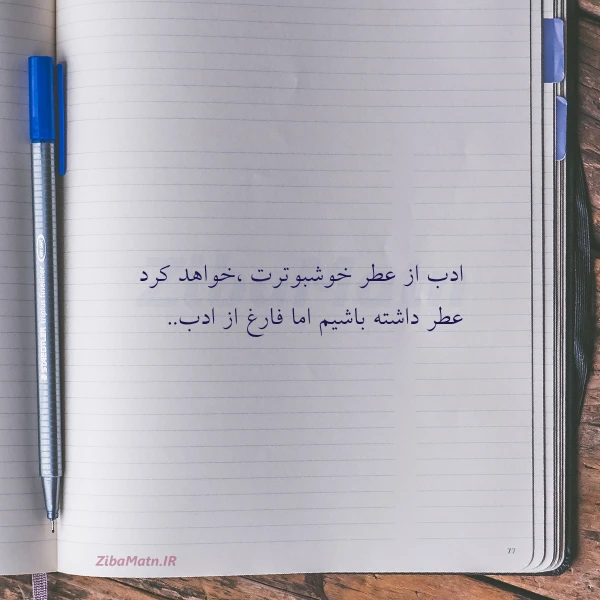 ادب از عطر خوشبوترت ،خواهد کرد
عطر داشته باشیم اما فارغ از ادب..
77
ZibaMatn.IR